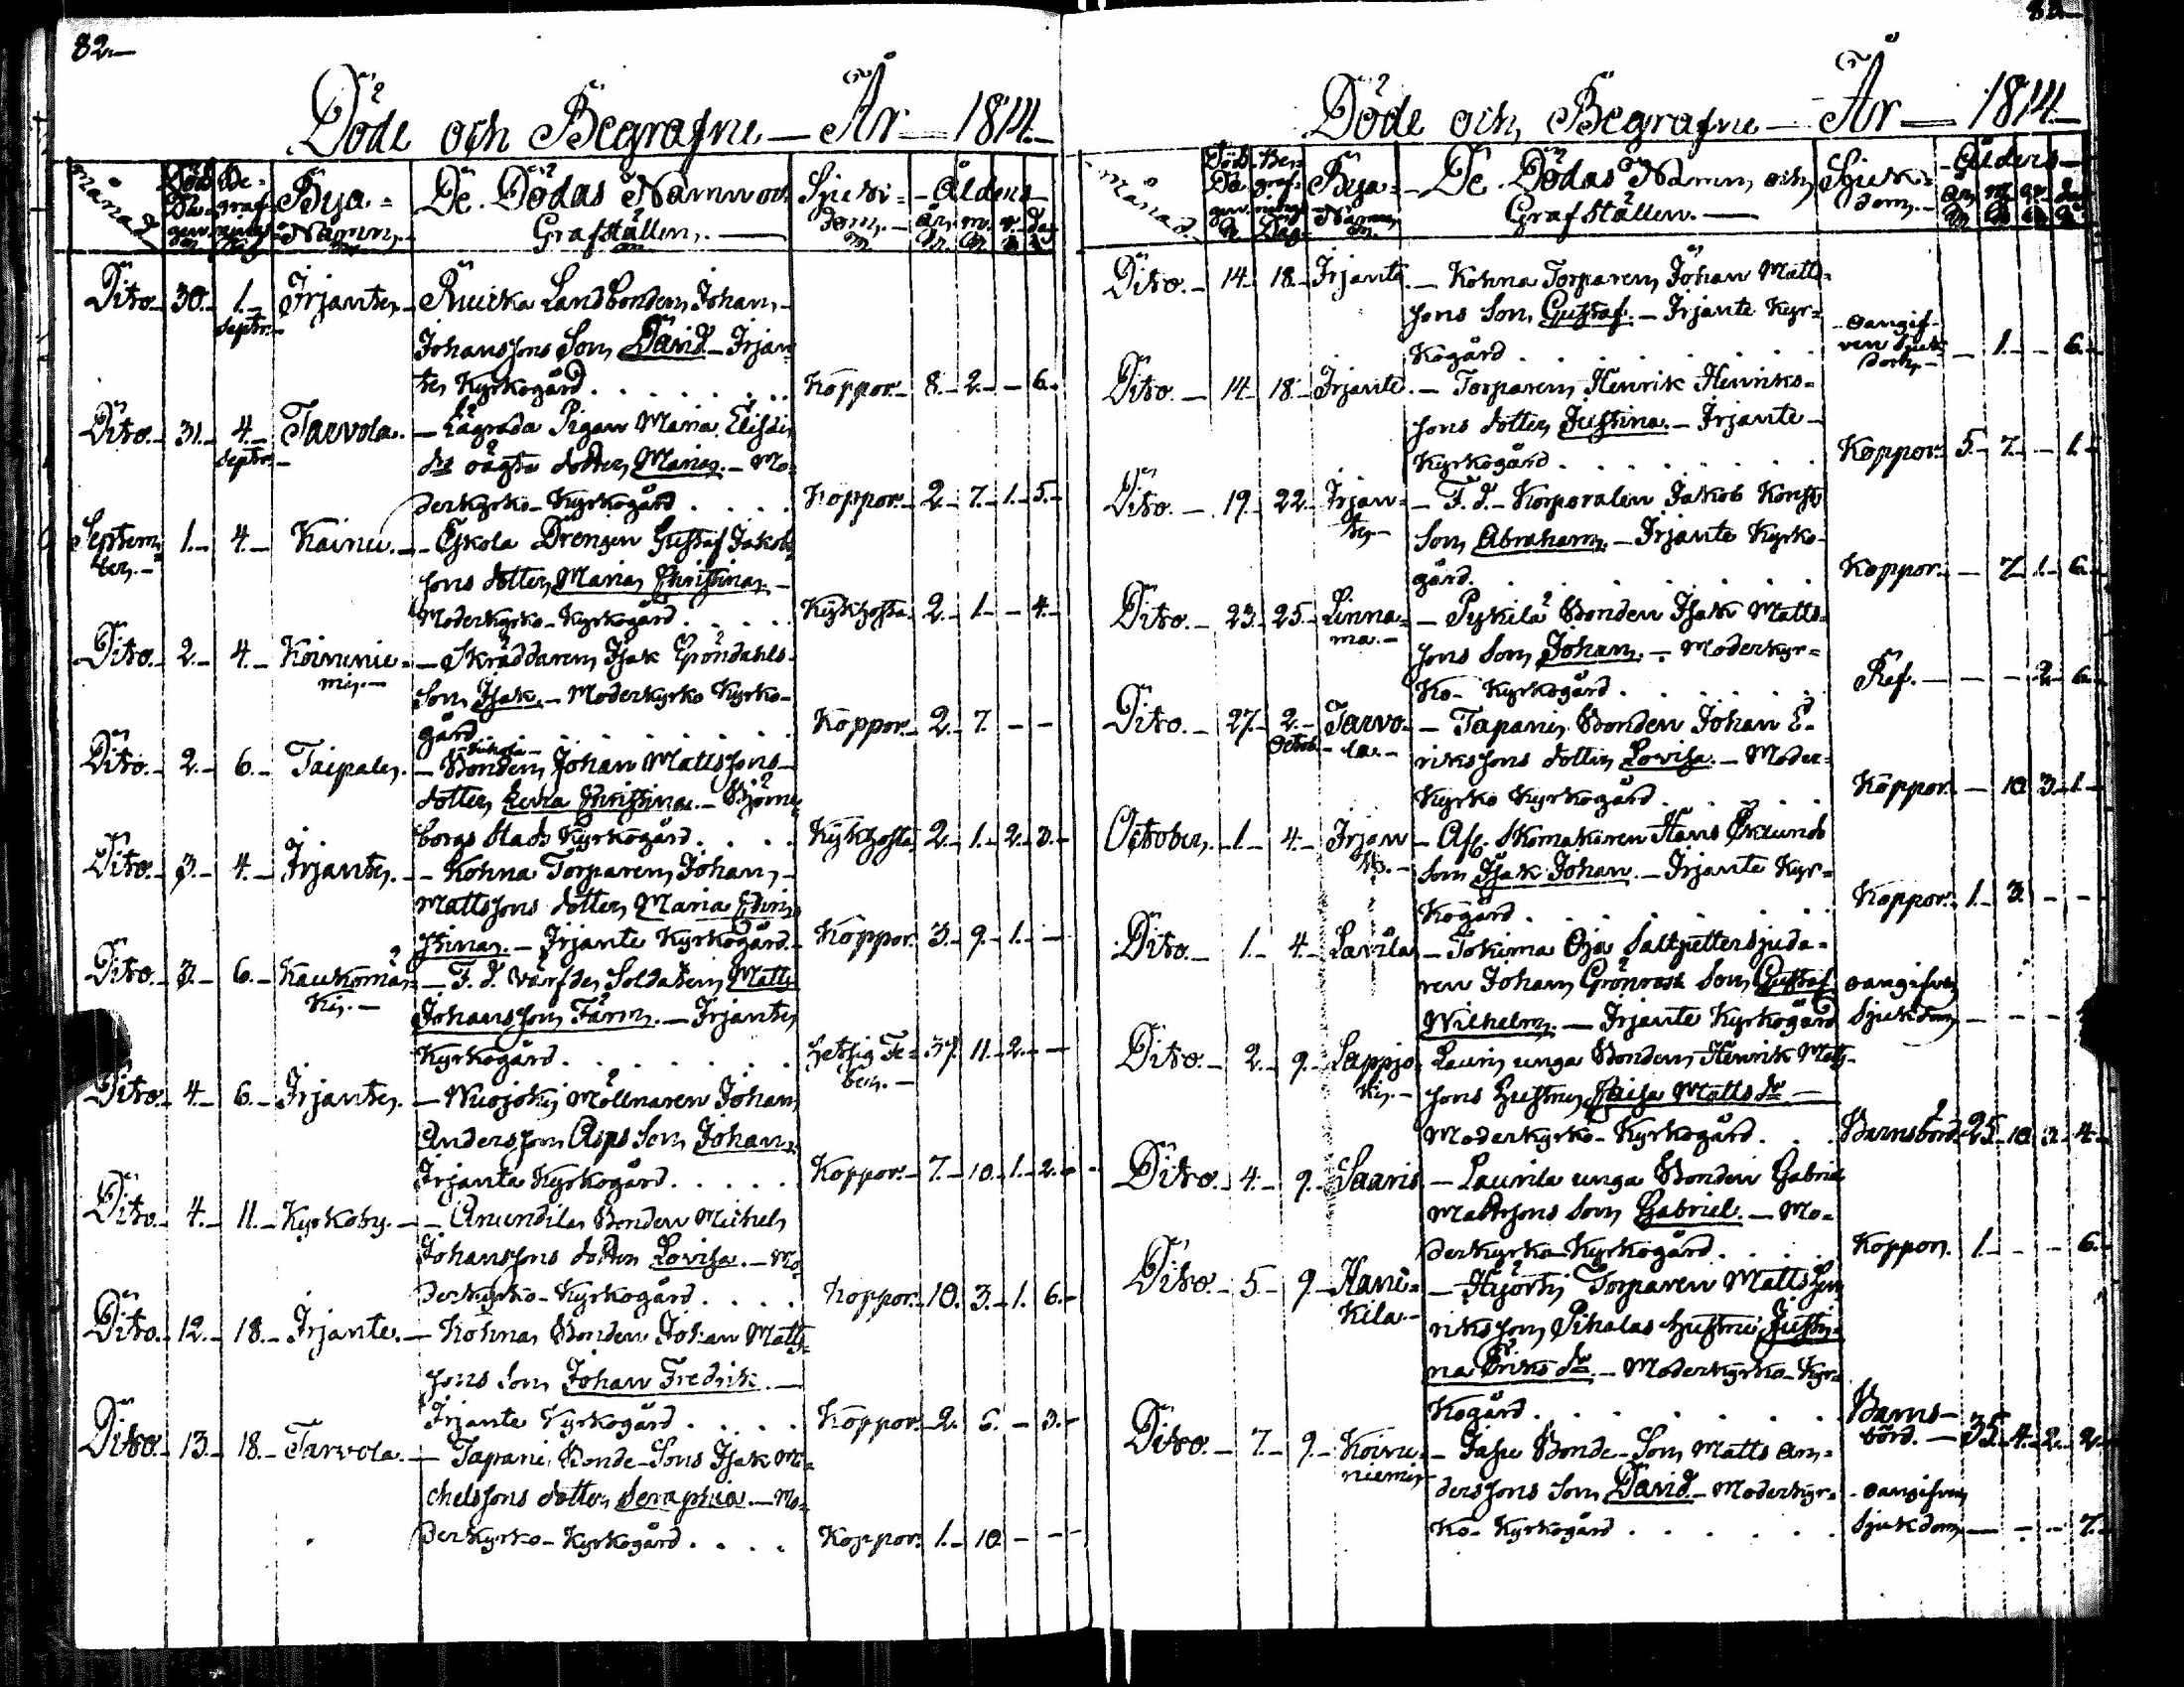 82.—
Döde och Begrafne — År — 1814.—
Månad
Död Dagen
Begrafnings Dag
Bya= Namn
De Dödas Namn och Grafställen.—
Sjukdom.
Ålders
år. m. v. dag
Dito. 30. 1. Septr. Irjante. Ruuska Landbonden Johan
Johanssons Son David. — Irjan=
te Kyrkogård . . . Koppor. 8. 2. — 6.
Dito. 31. 4. Septr. Tarvola. — Lägrada Pigan Maria Elis
dr oägta dotter Maria. — Mo=
derkyrko-Kyrkogård . . . Koppor. 2. 7. 1. 5.
September. 1. 4. Kainu. — Eskola Drengen Gustaf Jakobs
sons dotter Maria Christina. —
Moderkyrko-Kyrkogård . . . Kykhosta. 2. 1. — 4.
Dito. 2. 4. Koivunie=mi. — Skräddaren Isak Gröndahls
Son Isak. — Moderkyrko Kyrko-
gård . . . Koppor. 2. 7. — —
Dito. 2. 6. Taipale. — Bonden Johan Mattssons
dotter Christina. — Björne
borgs Stads Kyrkogård . . . Kykhosta. 2. 1. 2. 3.
Dito. 3. 4. Irjante. — Kohna Torparen Johan
Mattssons dotter Maria Chri
stina. — Irjante Kyrkogård. Koppor. 3. 9. 1. —
Dito. 3. 6. Kaukomä=ki. — F. d. Värfde Soldaten Matts
Johansson Färm. — Irjante
Kyrkogård . . . Hetsig Feber. 37. 11. 2. —
Dito. 4. 6. Irjante. — Nuojoki Möllnaren Johan
Andersson Asps Son Johan.
Irjante Kyrkogård . . . Koppor. 7. 10. 1. 2.
Dito. 4. 11. Kyrkoby. — Anundila Bonden Michel
Johanssons dotter Lovisa. — Mo
derkyrko-Kyrkogård . . . Koppor. 10. 3. 1. 6.
Dito. 12. 18. Irjante. — Kohna Bonden Johan Matts
sons Son Johan Fredrik. —
Irjante Kyrkogård . . . Koppor. 2. — 3.
Dito. 13. 18. Tarvola. — Tapani Bonde-Sons Isak Mi
chelssons dotter Seraphia. — Mo=
derkyrko-Kyrkogård . . . Koppor. 1. 10 — —
82.—
Döde och Begrafne — År — 1814.—
Månad.
Död Dagen
Begrafnings Dag
Bya= Namn
De Dödas Namn och Grafställen.—
Sjukdom.
Ålders
Dito. 14. 18. Irjante. — Kohna Torparen Johan Matts=
sons Son Gustaf. — Irjante Kyr=
kogård . . . oangifven Sjukdom — 1. — 6.
Dito. 14. 18. Irjante. — Torparen Henrik Henriks=
sons dotter Justina. — Irjante
Kyrkogård . . . Koppor. 5. 7. — 1.
Dito. 19. 22. Irjan=te. — F. d. Korporalen Jakob Konst
Son Abraham. — Irjante Kyrko-
gård. . . . Koppor. — 7. 1. 6.
Dito. 23. 25. Linna=ma. — Pykilä Bonden Isak Matts=
sons Son Johan. — Moderkyr=
ko-Kyrkogård . . . Ref. — — 2. 6.
Dito. 27. 2. Octob. Tarvo=la. — Tapani Bonden Johan E=
rikssons dotter Lovisa. — Moder=
kyrko Kyrkogård . . . Koppor. — 10 3. 1.
October. 1. 4. Irjan — Afl. Skomakaren Hans
Son Isak Johan. — Irjante Kyr=
kogård . . . Koppor. 1. 3. — —
Dito. 1. 4. Lavila — Tokima Oja Saltpettersjuda=
ren Johan Grönroos Son Gustaf
Wilhelm. — Irjante Kyrkogård oangifven Sjukdom — — —
Dito. 2. 9. Lappjo=ki. Lauri unga Bonden Henrik Matts
sons Hustru Caisa Matts dr —
Moderkyrko-Kyrkogård . . . Barnsbörd. 25. 10. 3. 4.
Dito. 4. 9. Saaris. — Laurila unga Bonden Gabriel
Mattssons Son Gabriel. — Mo=
derkyrko-Kyrkogård . . . Koppor. 1. — — 6.
Dito. 5. 9. Hani=kila. — Hjorth Torparen Matts Hen
riksson Pihalas hustru Justi=
na Eriks dr. — Moderkyrko-Kyr=
kogård . . . Barns=börd. 35. 4. 2. 2.
Dito. 7. 9. Koivu=niemi. — Jasu Bonde-Son Matts An=
derssons Son David. — Moderkyr=
ko-Kyrkogård . . . oangifven Sjukdom — — — 7.